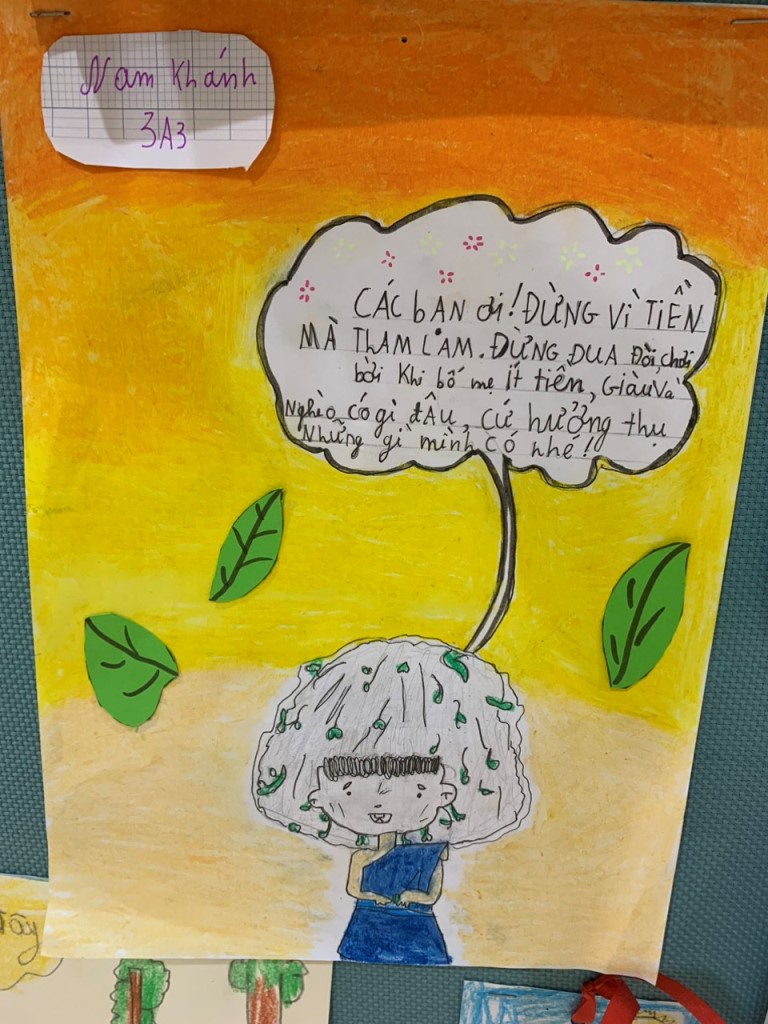 Nam Khánh
3A3
CÁC bẠN ơi! ĐỪNG Vì TiỀN
MÀ ThAM LAM. ĐỪNG ĐUA Đòi, chơi
bởi Khi bố mẹ ít tiền, Giàu Và
Nghèo có gì đÂu, cứ hưởng thụ
Những gì mình có nhé!
Tây